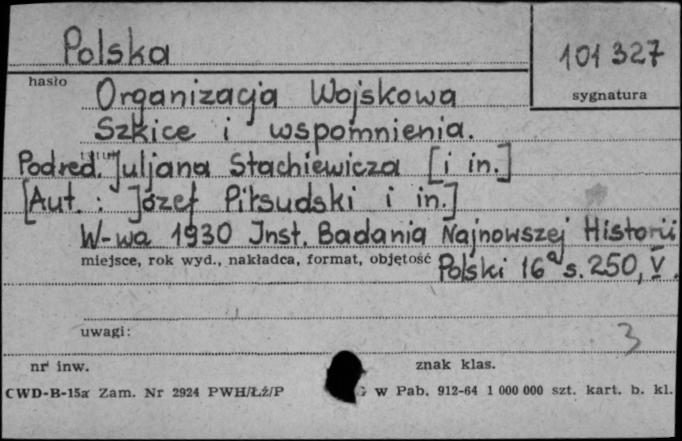 Polska
101 327
hasło
sygnatura
Organizacja Wojskowa
Szkice i wspomnienia.
Pod red. Juljana Stachiewicza [i in.]
[Aut. : Józef Piłsudski i in.]
W-wa 1930 Inst. Badania Najnowszej Historii
miejsce, rok wyd., nakładca, format, objętość
Polski 16° s. 250, V.
uwagi:
3
nr inw.
znak klas.
CWD-B-15a Zam. Nr 2924 PWH/Łź/P
G w Pab. 912-64 1 000 000 szt. kart. b. kl.